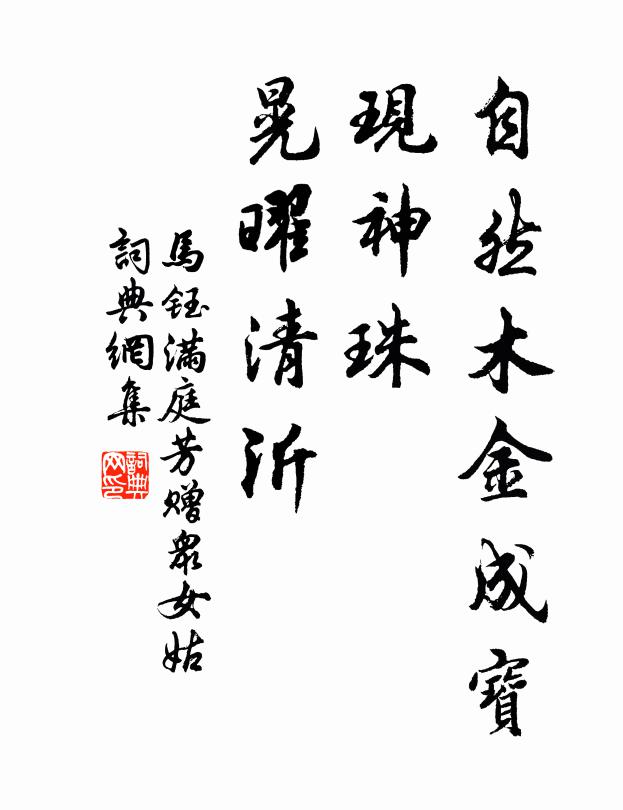 自然木金成寶
現神珠
晃曜清沂
馬鈺滿庭芳贈眾女姑
詞典網集
詞典
网印